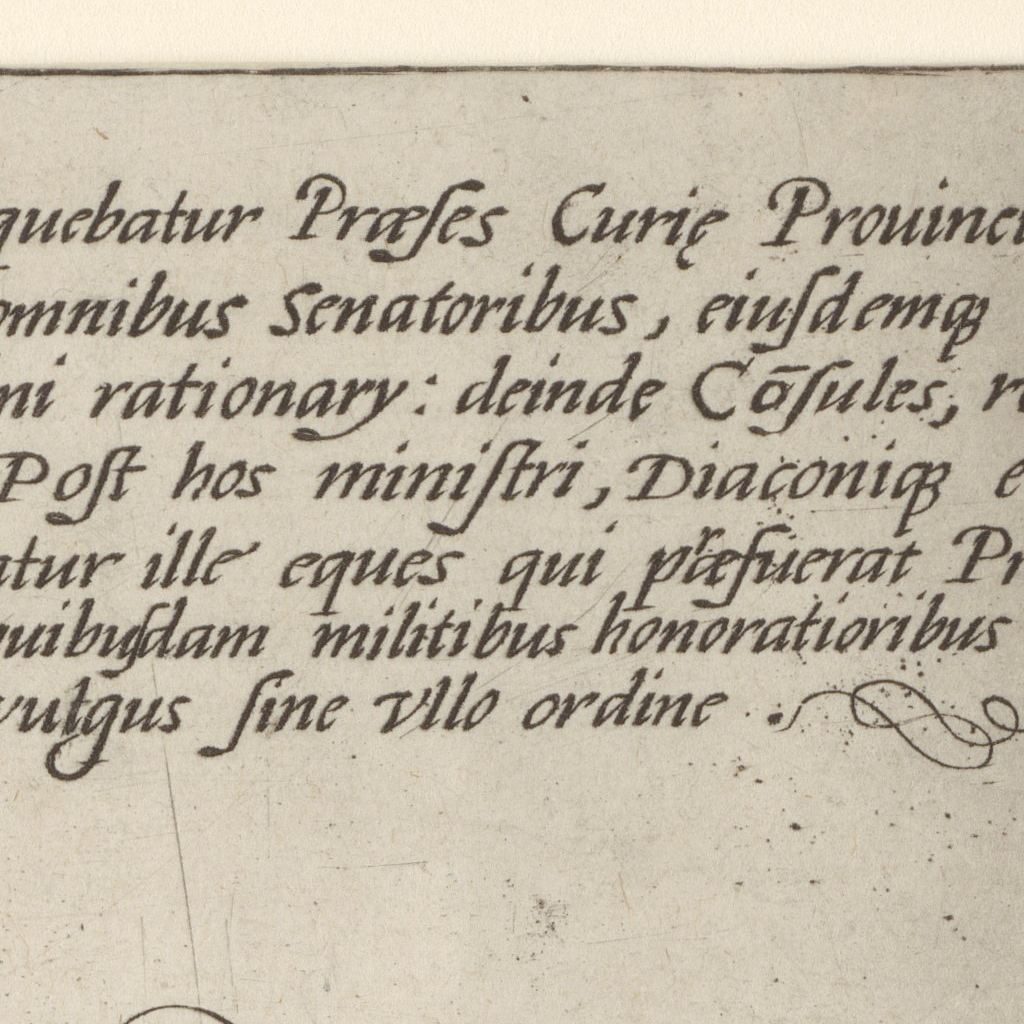 quebatur Præſes Curię Prouinci
omnibus Senatoribus, eiuſdemqꝫ
ni rationary: deinde Cōſules, r
Poſt hos miniſtri, Diaconiqꝫ e
atur ille eques qui præfuerat Pr
quibuſdam militibus honoratioribus
vulgus ſine vllo ordine .